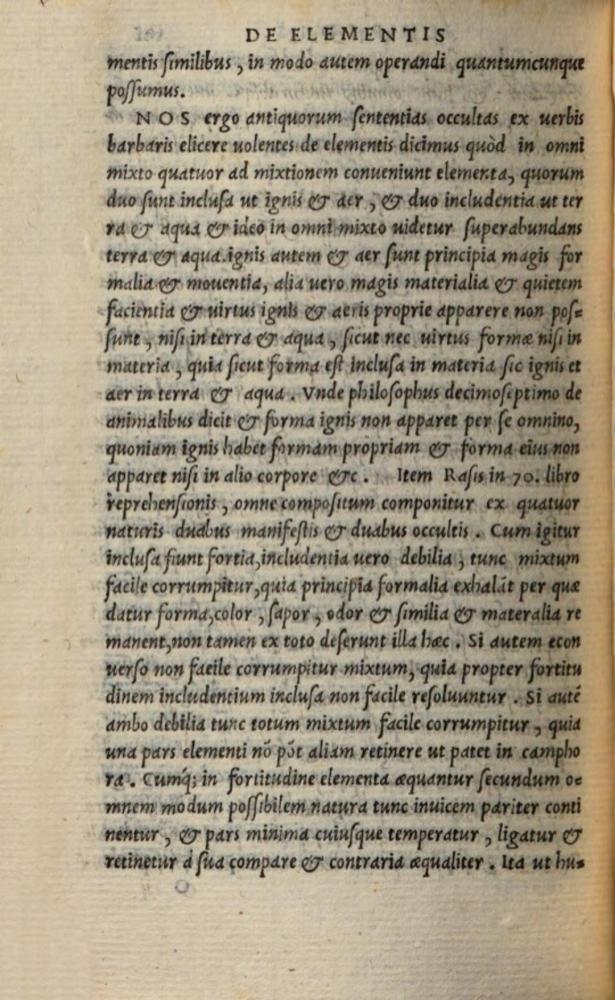 DE ELEMENTIS
mentis ſimilibus, in modo autem operandi quantumcunque
poſſumus.
NOS ergo antiquorum ſententias occultas ex uerbis
barbaris elicere uolentes de elementis dicimus quòd in omni
mixto quatuor ad mixtionem conueniunt elementa, quorum
duo ſunt incluſa ut ignis & aer, & duo includentia ut ter
ra & aqua & ideo in omni mixto uidetur ſuperabundans
terra & aqua.ignis autem & aer ſunt principia magis for
malia & mouentia, alia uero magis materialia & quietem
facientia & uirtus ignis & aeris proprie apparere non poſ=
ſunt, niſi in terra & aqua, ſicut nec uirtus formæ niſi in
materia, quia ſicut forma eſt incluſa in materia ſic ignis et
aer in terra & aqua. Vnde philoſophus decimoſeptimo de
animalibus dicit & forma ignis non apparet per ſe omnino,
quoniam ignis habet formam propriam & forma eius non
apparet niſi in alio corpore &c. Item Raſis in 70. libro
reprehenſionis, omne compoſitum componitur ex quatuor
naturis duabus manifeſtis & duabus occultis. Cum igitur
incluſa fiunt fortia,includentia uero debilia, tunc mixtum
facile corrumpitur,quia principia formalia exhalāt per quæ
datur forma,color, ſapor, odor & ſimilia & materalia re
manent,non tamen ex toto deſerunt illa hæc. Si autem econ
uerſo non facile corrumpitur mixtum, quia propter fortitu
dinem includentium incluſa non facile reſoluuntur. Si autē
ambo debilia tunc totum mixtum facile corrumpitur, quia
una pars elementi nō pōt aliam retinere ut patet in campho
ra. Cumq́; in fortitudine elementa æquantur ſecundum o=
mnem modum poſſibilem natura tunc inuicem pariter conti
nentur, & pars minima cuiuſque temperatur, ligatur &
retinetur à ſua compare & contraria æqualiter. Ita ut hu=